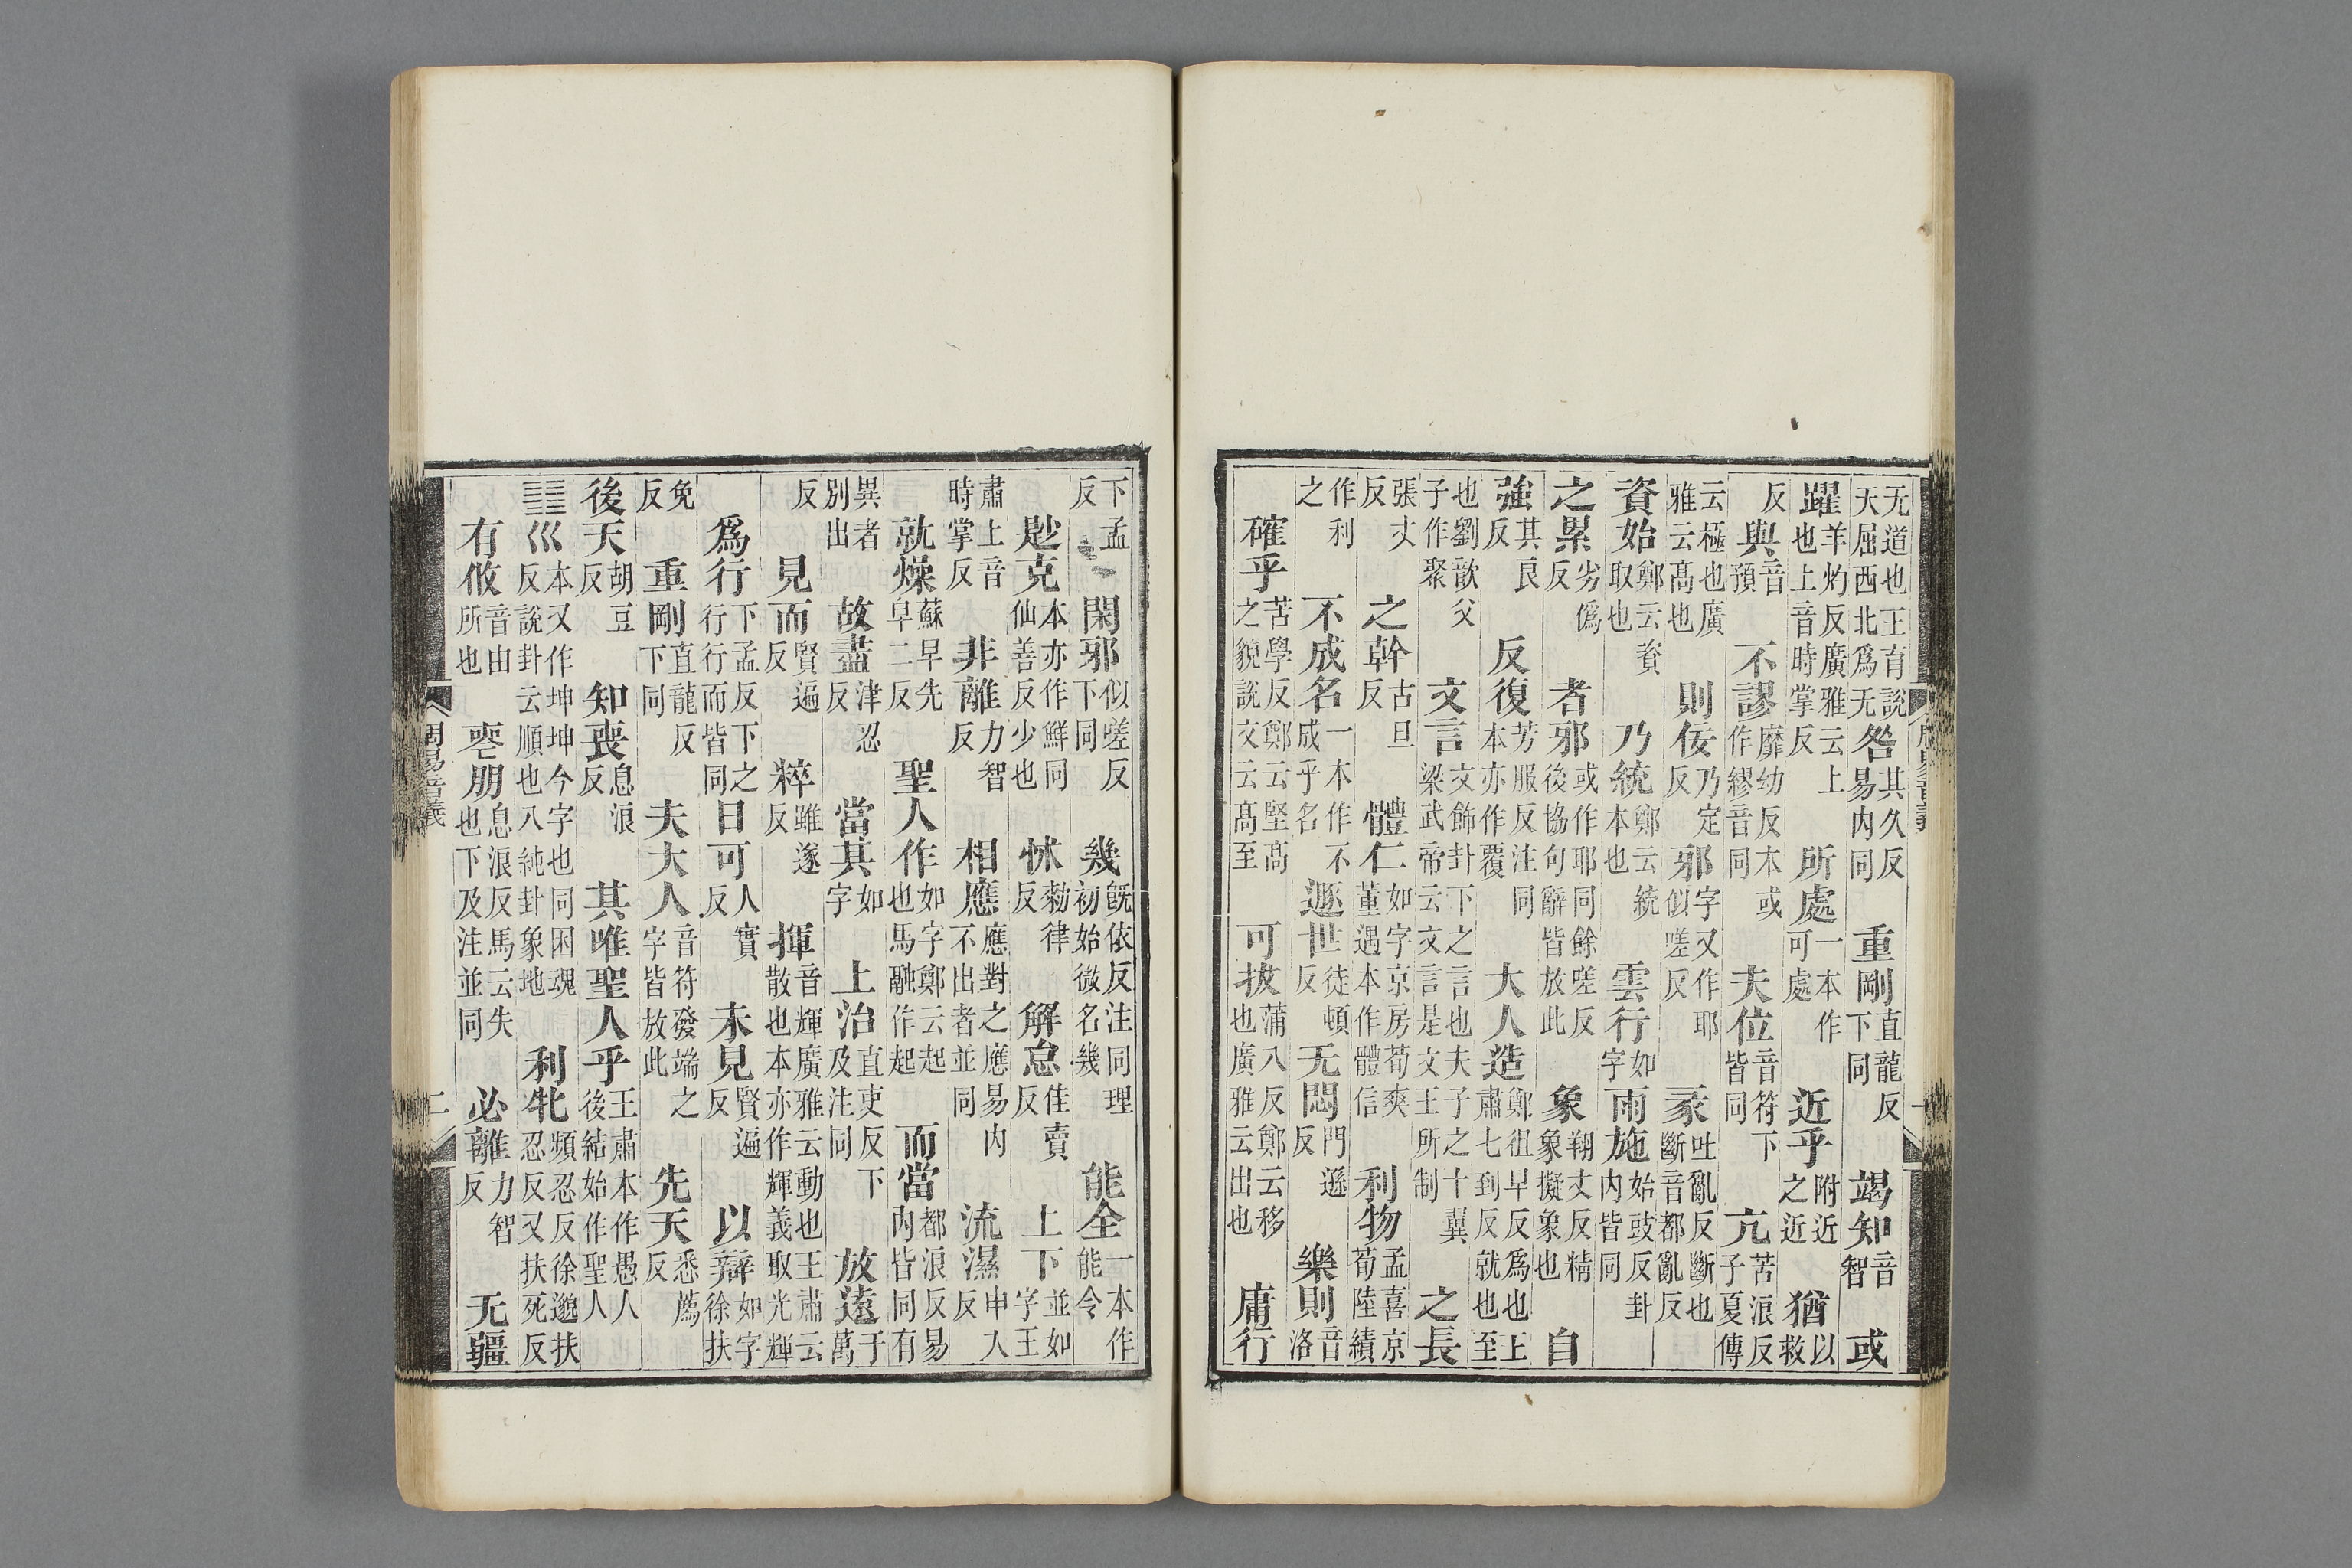 无道也王育說天屈西北爲无咎其久反易内同重剛直龍反下同竭知音智或
躍羊灼反廣雅云上也上音時掌反所處一本作可處近乎附近之近猶以救
反與音預不謬靡幼反本或作繆音同夫位音符下皆同亢苦浪反子夏傳
云極也廣雅云高也則佞乃定反邪字又作耶似嗟反彖吐亂反斷也斷音都亂反
資始鄭云資取也乃統鄭云統本也雲行如字雨施始豉反卦内皆同
之累劣僞反者邪或作耶同餘嗟反後協句辭皆放此象翔丈反精象擬象也自
強其良反反復芳服反注同本亦作覆大人造鄭徂早反爲也王肅七到反就也至
也劉歆父子作聚文言文飾卦下之言也夫子之十翼梁武帝云文言是文王所制之長
張丈反之幹古旦反體仁如字京房荀爽董遇本作體信利物孟喜京荀陸績
作利之不成名一本作不成乎名遯世徒頓反无悶門遜反樂則音洛
確乎苦學反鄭云堅高之貌說文云高至可拔蒲八反鄭云移也廣雅云出也庸行
下孟反閑邪似嗟反下同幾旣依反注同理初始微名幾能全一本作能令
尟克本亦作鮮同仙善反少也怵勑律反解怠佳賣反上下並如字王
肅上音時掌反非離力智反相應應對之應易内不出者並同流濕申入反
就燥蘇早先皁二反聖人作如字鄭云起也馬融作起而當都浪反易内皆同有
異者別出故盡津忍反當其如字上治直吏反下及注同放遠于萬
反見而賢遍反粹雖遂反揮音輝廣雅云動也王肅云散也本亦作輝義取光輝
爲行下孟反下之行行而皆同日可人實反未見賢遍反以辯如字徐扶
免反重剛直龍反下同夫大人音符發端之字皆放此先天悉薦反
後天胡豆反知喪息浪反其唯聖人乎王肅本作愚人後結始作聖人
巛本又作坤坤今字也同困魂反說卦云順也八純卦象地利牝頻忍反徐邈扶忍反又扶死反
有攸音由所也喪朋息浪反馬云失也下及注並同必離力智反无疆
周易音義
二